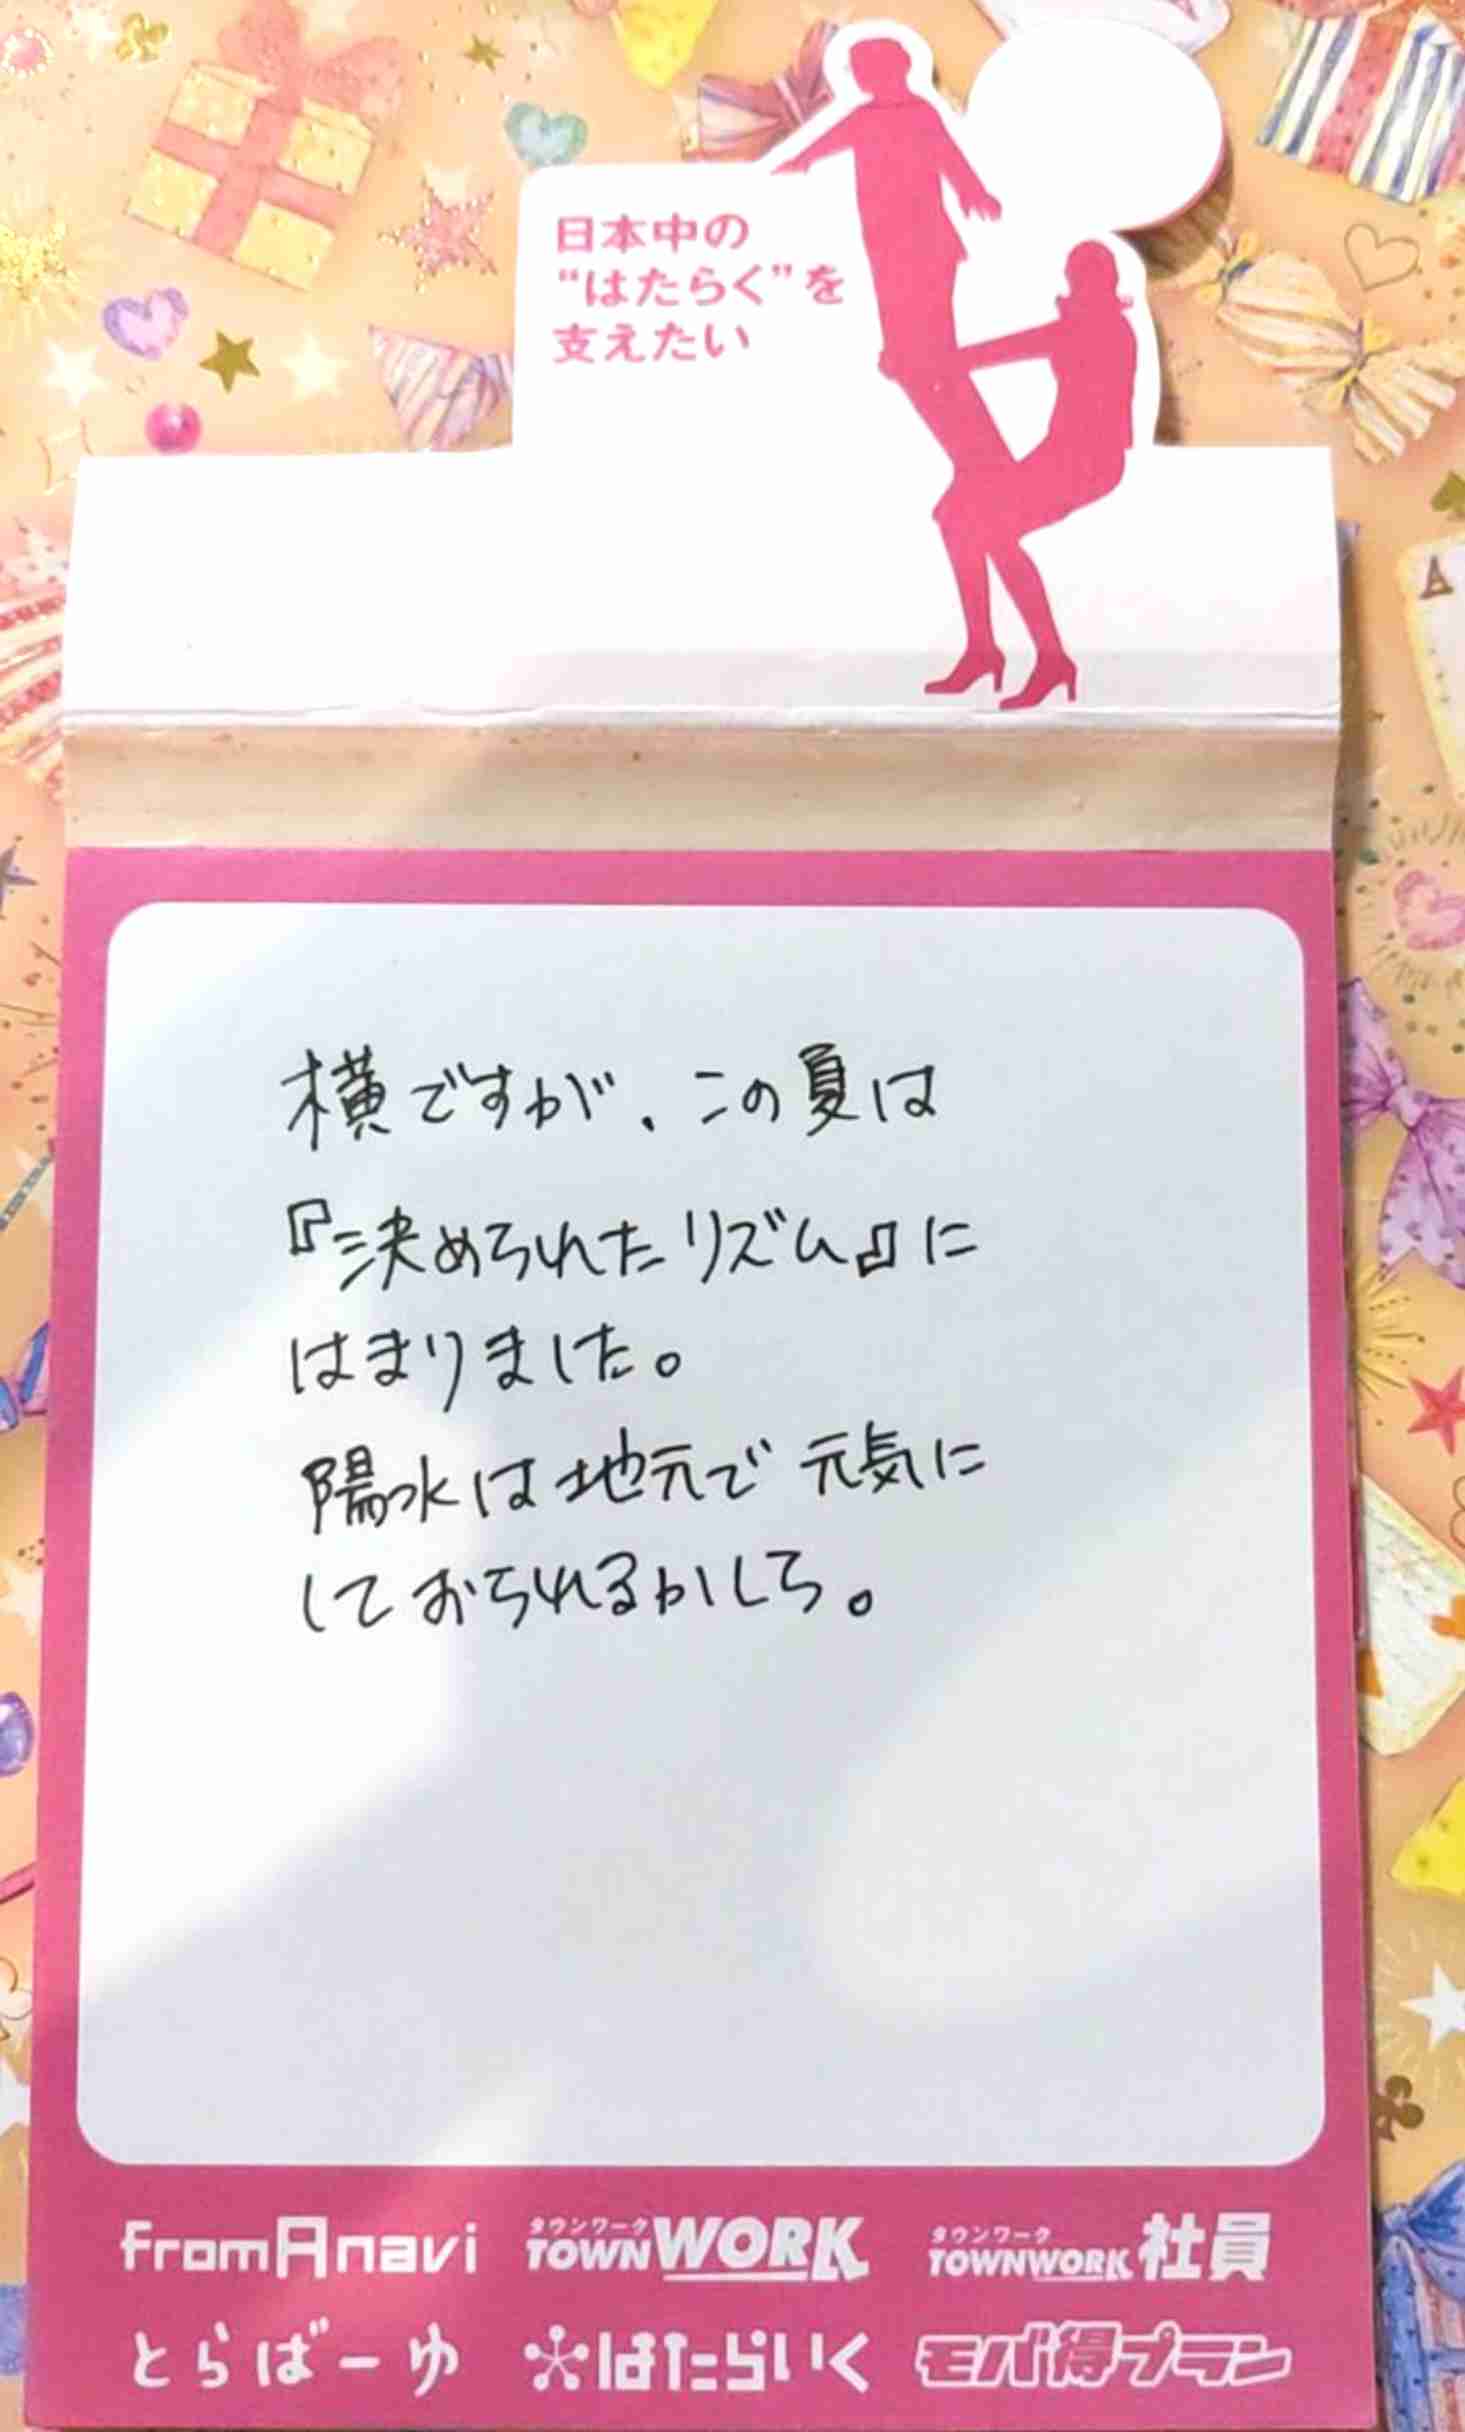 日本中の
“はたらく”を
支えたい
横ですが、この夏は
『決められたリズム』に
はまりました。
陽水は地元で元気に
しておられるかしら。
fromAnavi タウンワーク TOWNWORK タウンワーク TOWNWORK社員
とらばーゆ はたらいく モバ得プラン
A